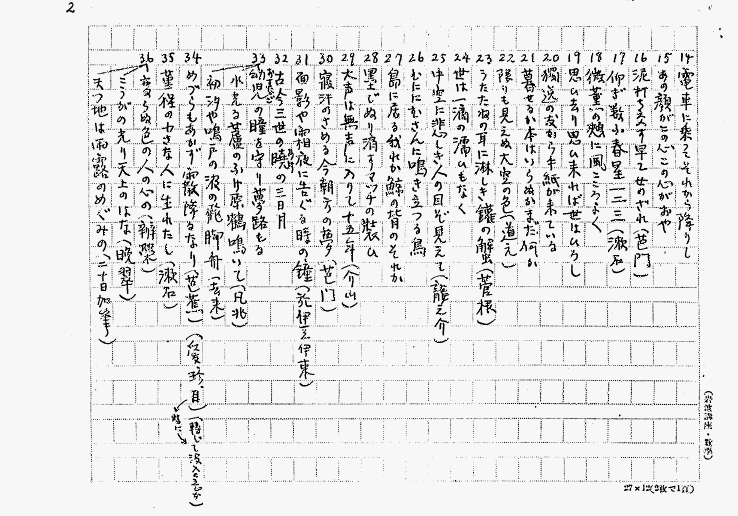 2
14 電車に乗てそれから降りし
15 あの顔がこの心この心がおや
16 泥打ち交す早乙女のざれ(芭門)
17 仰ぎ数ふ春星一二三(漱石)
18 微薫の頬に風こころよく
19 思ひ去り思ひ来れば世はひろし
20 独逸の友から手紙が来ている
21 暮せるか本はいらぬかまだ何か
22 限りも見えぬ大空の色(道え)
23 うたたねの耳に淋しき鑵の蟹(菅根)
24 世は一滴の濡ひもなく
25 中空に悲しき人の目ぞ見えて(龍之介)
26 むににむさんに鳴き立つる鳥
27 島に居る我れか鯨の背のそれか
28 黒とじぬり消すマッチの装ひ
29 大声は無声に入りて十五年(介山)
30 寝汗のさめる今朝方の夢(芭門)
31 面影や霜夜に告ぐる時の鐘(於伊豆伊東)
32 古今三世の暁の三日月
33 幼児の瞳を守り夢路もる
水光る蘆のふけ原鶴鳴いて(凡兆)
初汐や鳴戸の浪の飛脚舟(去来)
34 めづらもあかず霰降るなり(芭蕉)(仮愛珍、目)(転じて没入するか)
35 菫程の小さな人に生れたし(漱石)
36 下品ならぬ色の人の心の(辨榮)
こうがの光り天上のはな(晩翠)
天つ地は雨露のめぐみの(二十日加筆)
(岩波講座・数学)
27×12(2枚で1頁)